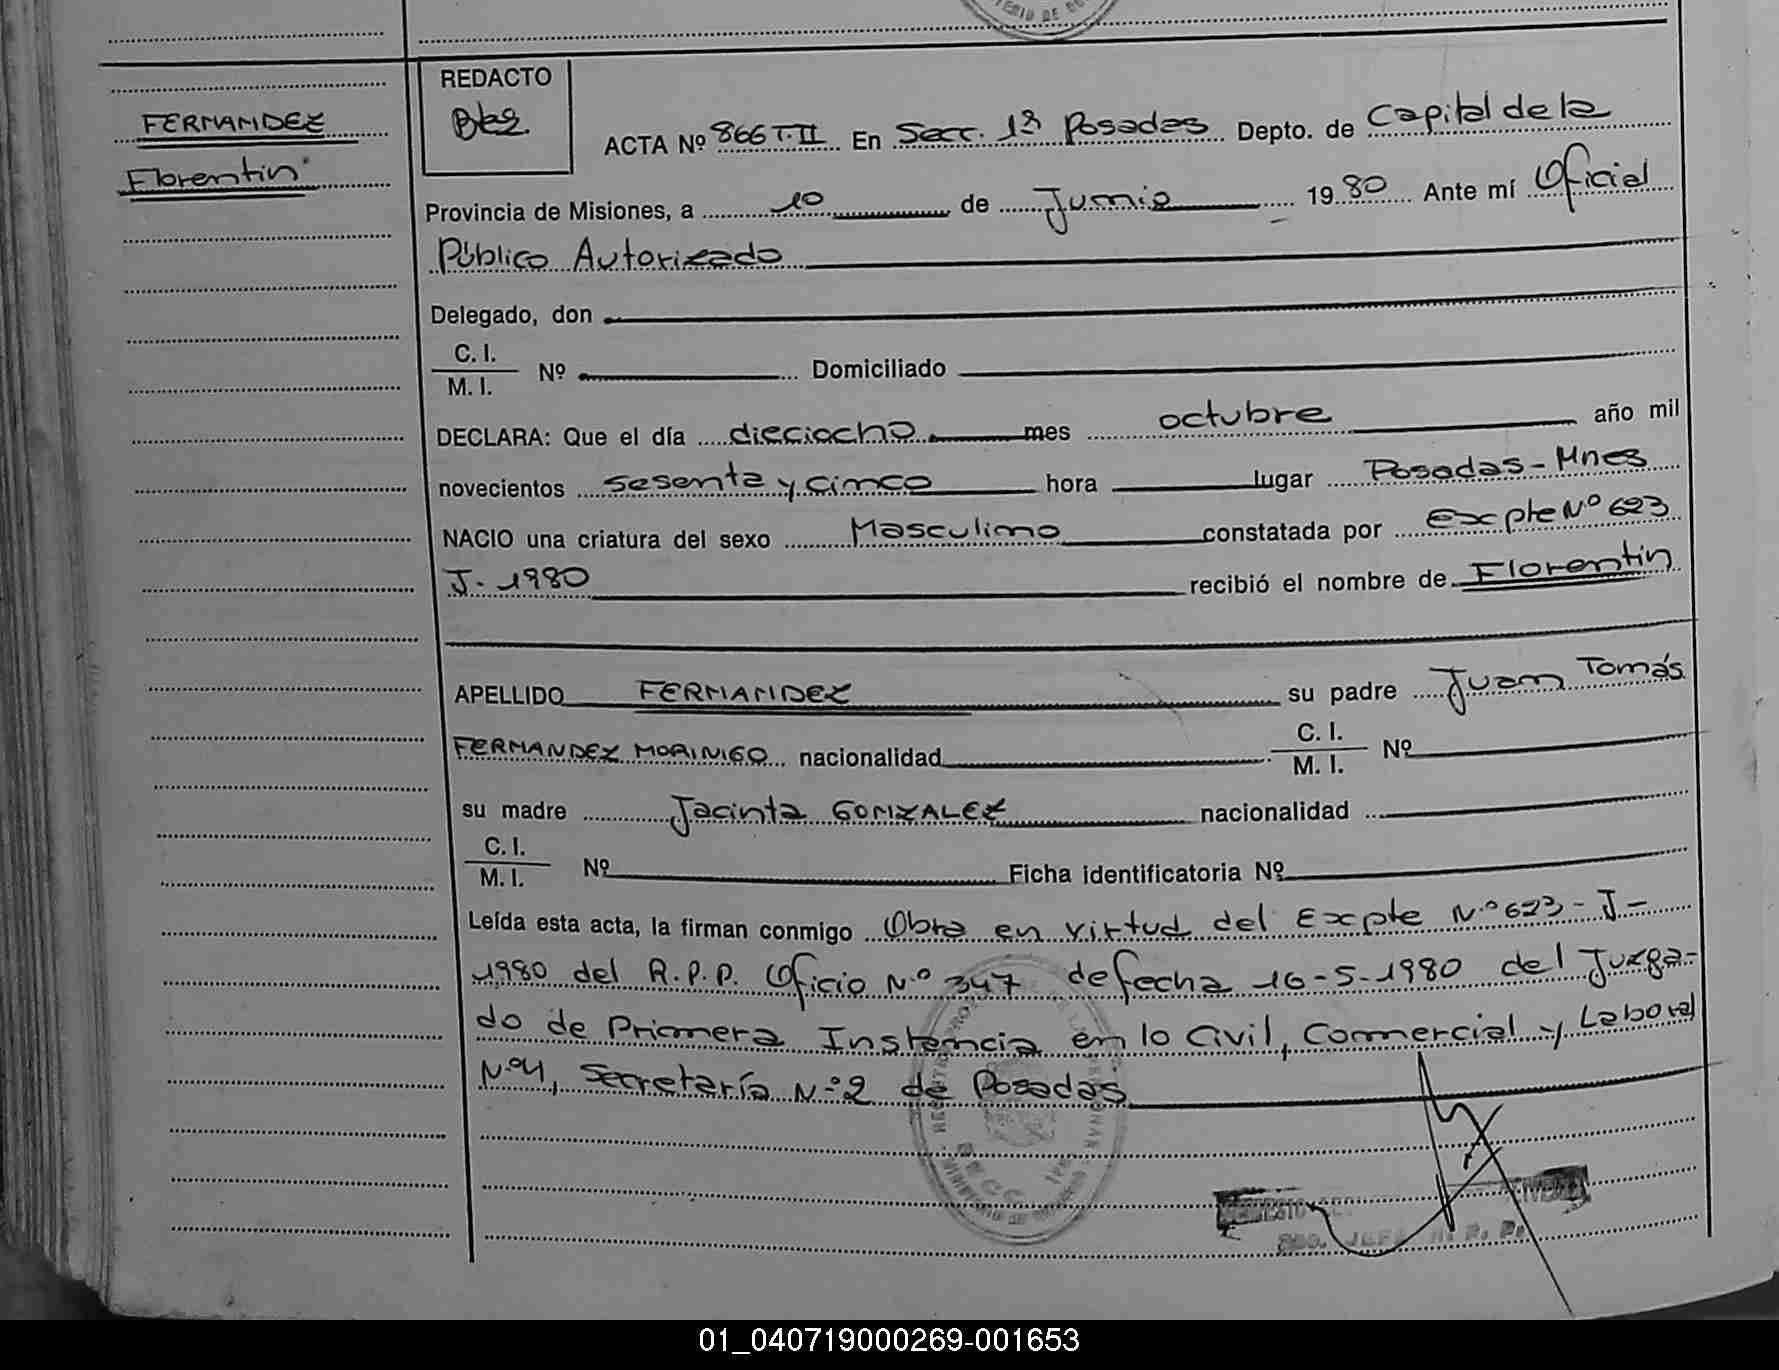 TERIO DE
FERNANDEZ
Florentin
REDACTO
ACTA Nº 866 T.II En Secc. 1ª Posadas Depto. de Capital de la
Provincia de Misiones, a 10 de Junio 1980 Ante mí Oficial
Público Autorizado
Delegado, don
C. I.
M. I. Nº Domiciliado
DECLARA: Que el día dieciocho mes octubre año mil
novecientos sesenta y cinco hora lugar Posadas - Mnes
NACIO una criatura del sexo Masculino constatada por Expte Nº 623
J - 1980 recibió el nombre de Florentin
APELLIDO FERNANDEZ su padre Juan Tomás
FERNANDEZ MORINIGO nacionalidad C. I. M. I. Nº
su madre Jacinta GONZALEZ nacionalidad
C. I.
M. I. Nº Ficha identificatoria Nº
Leída esta acta, la firman conmigo Obra en virtud del Expte Nº 623 - J -
1980 del R.P.P. Oficio Nº 347 de fecha 16-5-1980 del Juzga-
do de Primera Instancia en lo Civil, Comercial y Laboral
Nº 4, Secretaría Nº 2 de Posadas
01_040719000269-001653